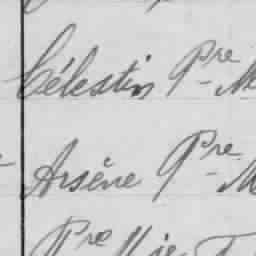 Célestin Pre M
Arsène Pre M
Pre Mie